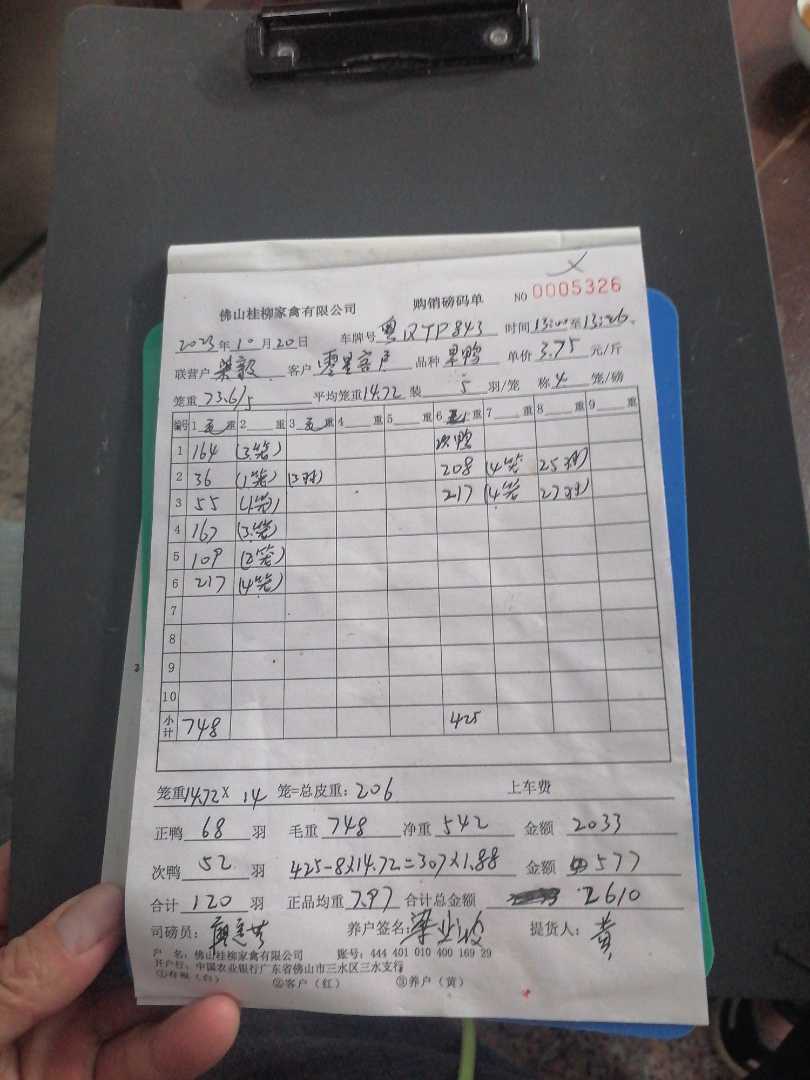 佛山桂柳家禽有限公司 购销磅码单 NO 0005326
2023年10月20日 车牌号 粤 时间 13:00至13:26
联营户 客户 零星客户 品种 果鸭 单价 3.75 元/斤
笼重 73.6/5 平均笼重 14.72 装 5 羽/笼 称 4 笼/磅
编号 1 毛重 2 重 3 重 4 重 5 重 6 毛重 7 重 8 重 9 重
1 164 (3笼) 次鸭
2 36 (1笼) (3羽) 208 (4笼 25羽)
3 55 (1笼) 217 (4笼 27羽)
4 167 (3笼)
5 109 (2笼)
6 217 (4笼)
7
8
9
10
小计 748 425
笼重 14.72 X 14 笼=总皮重: 206 上车费
正鸭 68 羽 毛重 748 净重 542 金额 2033
次鸭 52 羽 425-8X14.72=307X1.88 金额 577
合计 120 羽 正品均重 7.97 合计总金额 2610
司磅员: 养户签名: 提货人: 黄
户 名: 佛山桂柳家禽有限公司 账号: 444 401 010 400 169 29
开户行: 中国农业银行广东省佛山市三水区三水支行
①存根(白) ②客户(红) ③养户(黄)